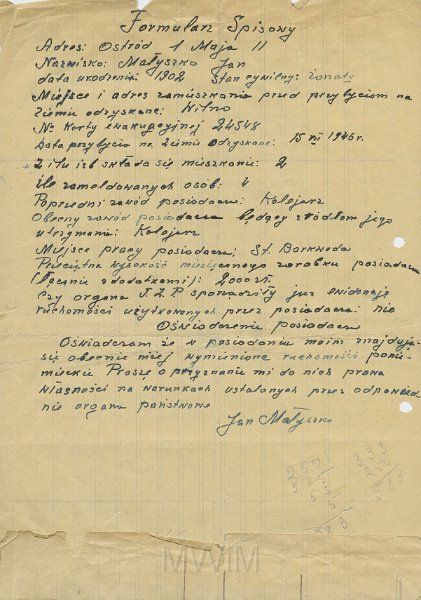 Formularz Spisowy
Adres: Ostród 1 Maja 11
Nazwisko: Małyszko Jan
data urodzenia 1902 Stan cywilny: żonaty
Miejsce i adres zamieszkania przed przybyciom na
ziemie odzyskane: Wilno
Nr Karty ewakuacyjnej 24548
Data przybycia na Ziemie Odzyskane: 15 VI 1946 r.
Z ilu izb składa się mieszkanie: 2
ile zameldowanych osób: 4
Poprzedni zawód posiadacza: Kolejarz
Obecny zawód posiadacza będący źródłom jego
utrzymania: Kolejarz
Miejsce pracy posiadacza: St.
Przeciętna wysokość miesięcznego zarobku posiadacza
(łącznie z dodatkami): 2000 zł.
Czy organa sporządziły już ewidencję
ruchomości użytkowanych przez posiadacza: nie
Oświadczenie posiadacza
Oświadczam że w posiadaniu moim znajdują
się obecnie niżej wymienione ruchomości ponie-
mieckie Proszę o przyznanie mi do nich prawa
własności na warunkach ustalonych przez odpowied
nie organa państwowe
Jan Małyszko
MWiM